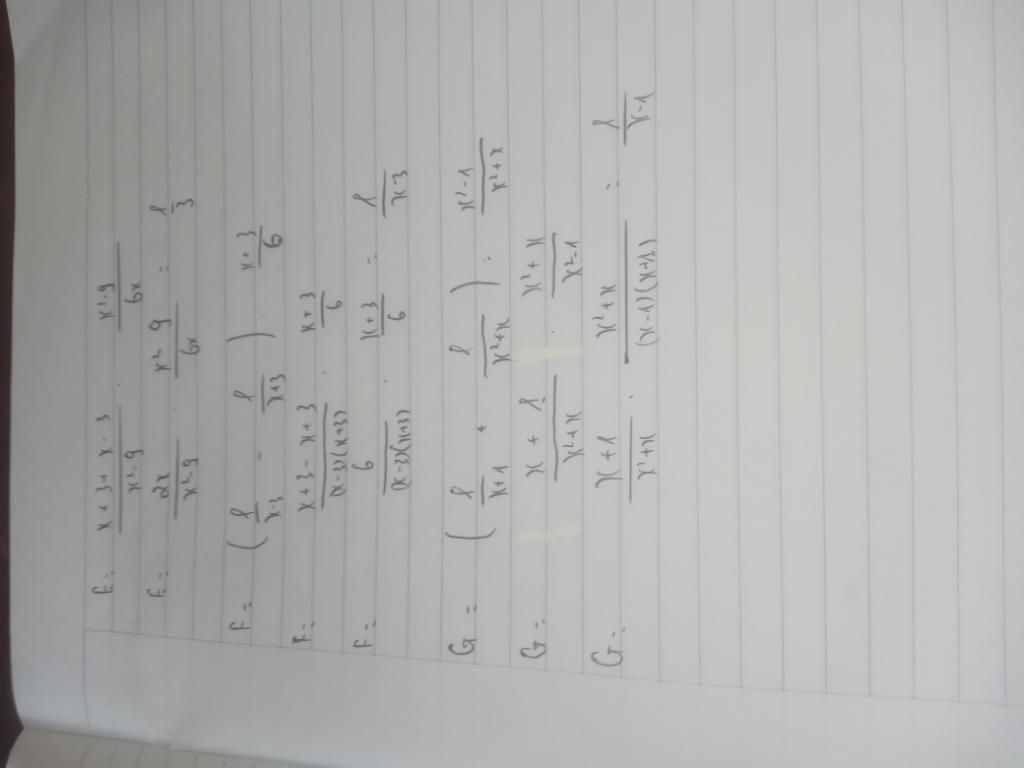 E = (x + 3 + x - 3)/(x² - 9) . (x² - 9)/(6x)
E = 2x/(x² - 9) . (x² - 9)/(6x) = 1/3
F = (1/(x-3) - 1/(x+3)) . (x+3)/6
F = (x + 3 - x + 3)/((x-3)(x+3)) . (x+3)/6
F = 6/((x-3)(x+3)) . (x+3)/6 = 1/(x-3)
G = (1/(x+1) + 1/(x²+x)) : (x²-1)/(x²+x)
G = (x + 1)/(x²+x) . (x²+x)/(x²-1)
G = (x+1)/(x²+x) . (x²+x)/((x-1)(x+1)) = 1/(x-1)